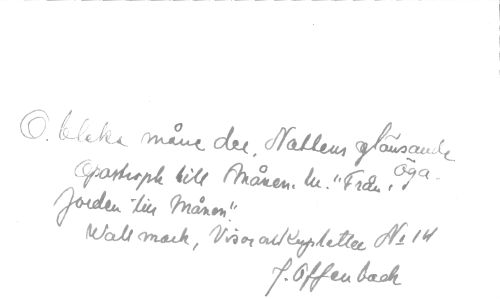 O. bleka måne du, Nattens glänsande
öga.
Apostroph till Månen. ur. "Från
Jorden till Månen".
Wallmark, Visor och Kupletter No 14
J. Offenbach